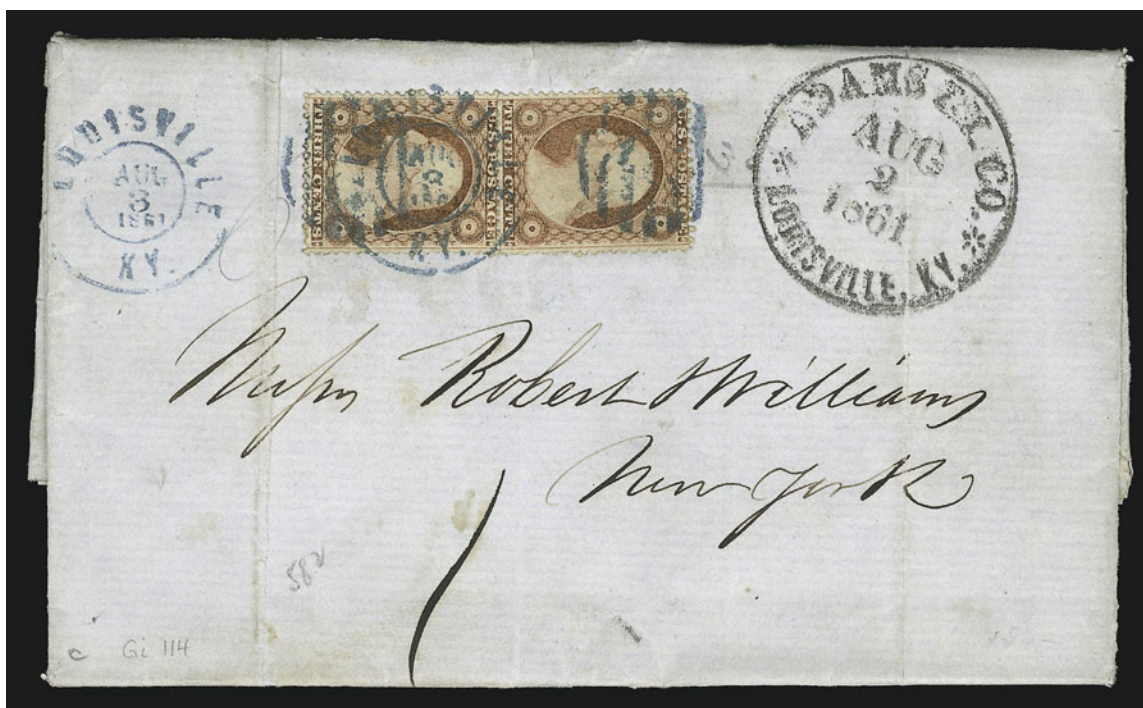 LOUISVILLE
AUG
3
1861
KY.
THREE CENTS
U.S. POSTAGE
THREE CENTS
U.S. POSTAGE
LOUISV
KY.
ADAMS EX. CO.
AUG
2
1861
LOUISVILLE, KY.
2
Messrs Robert & Williams
New York
582
c Gi 114